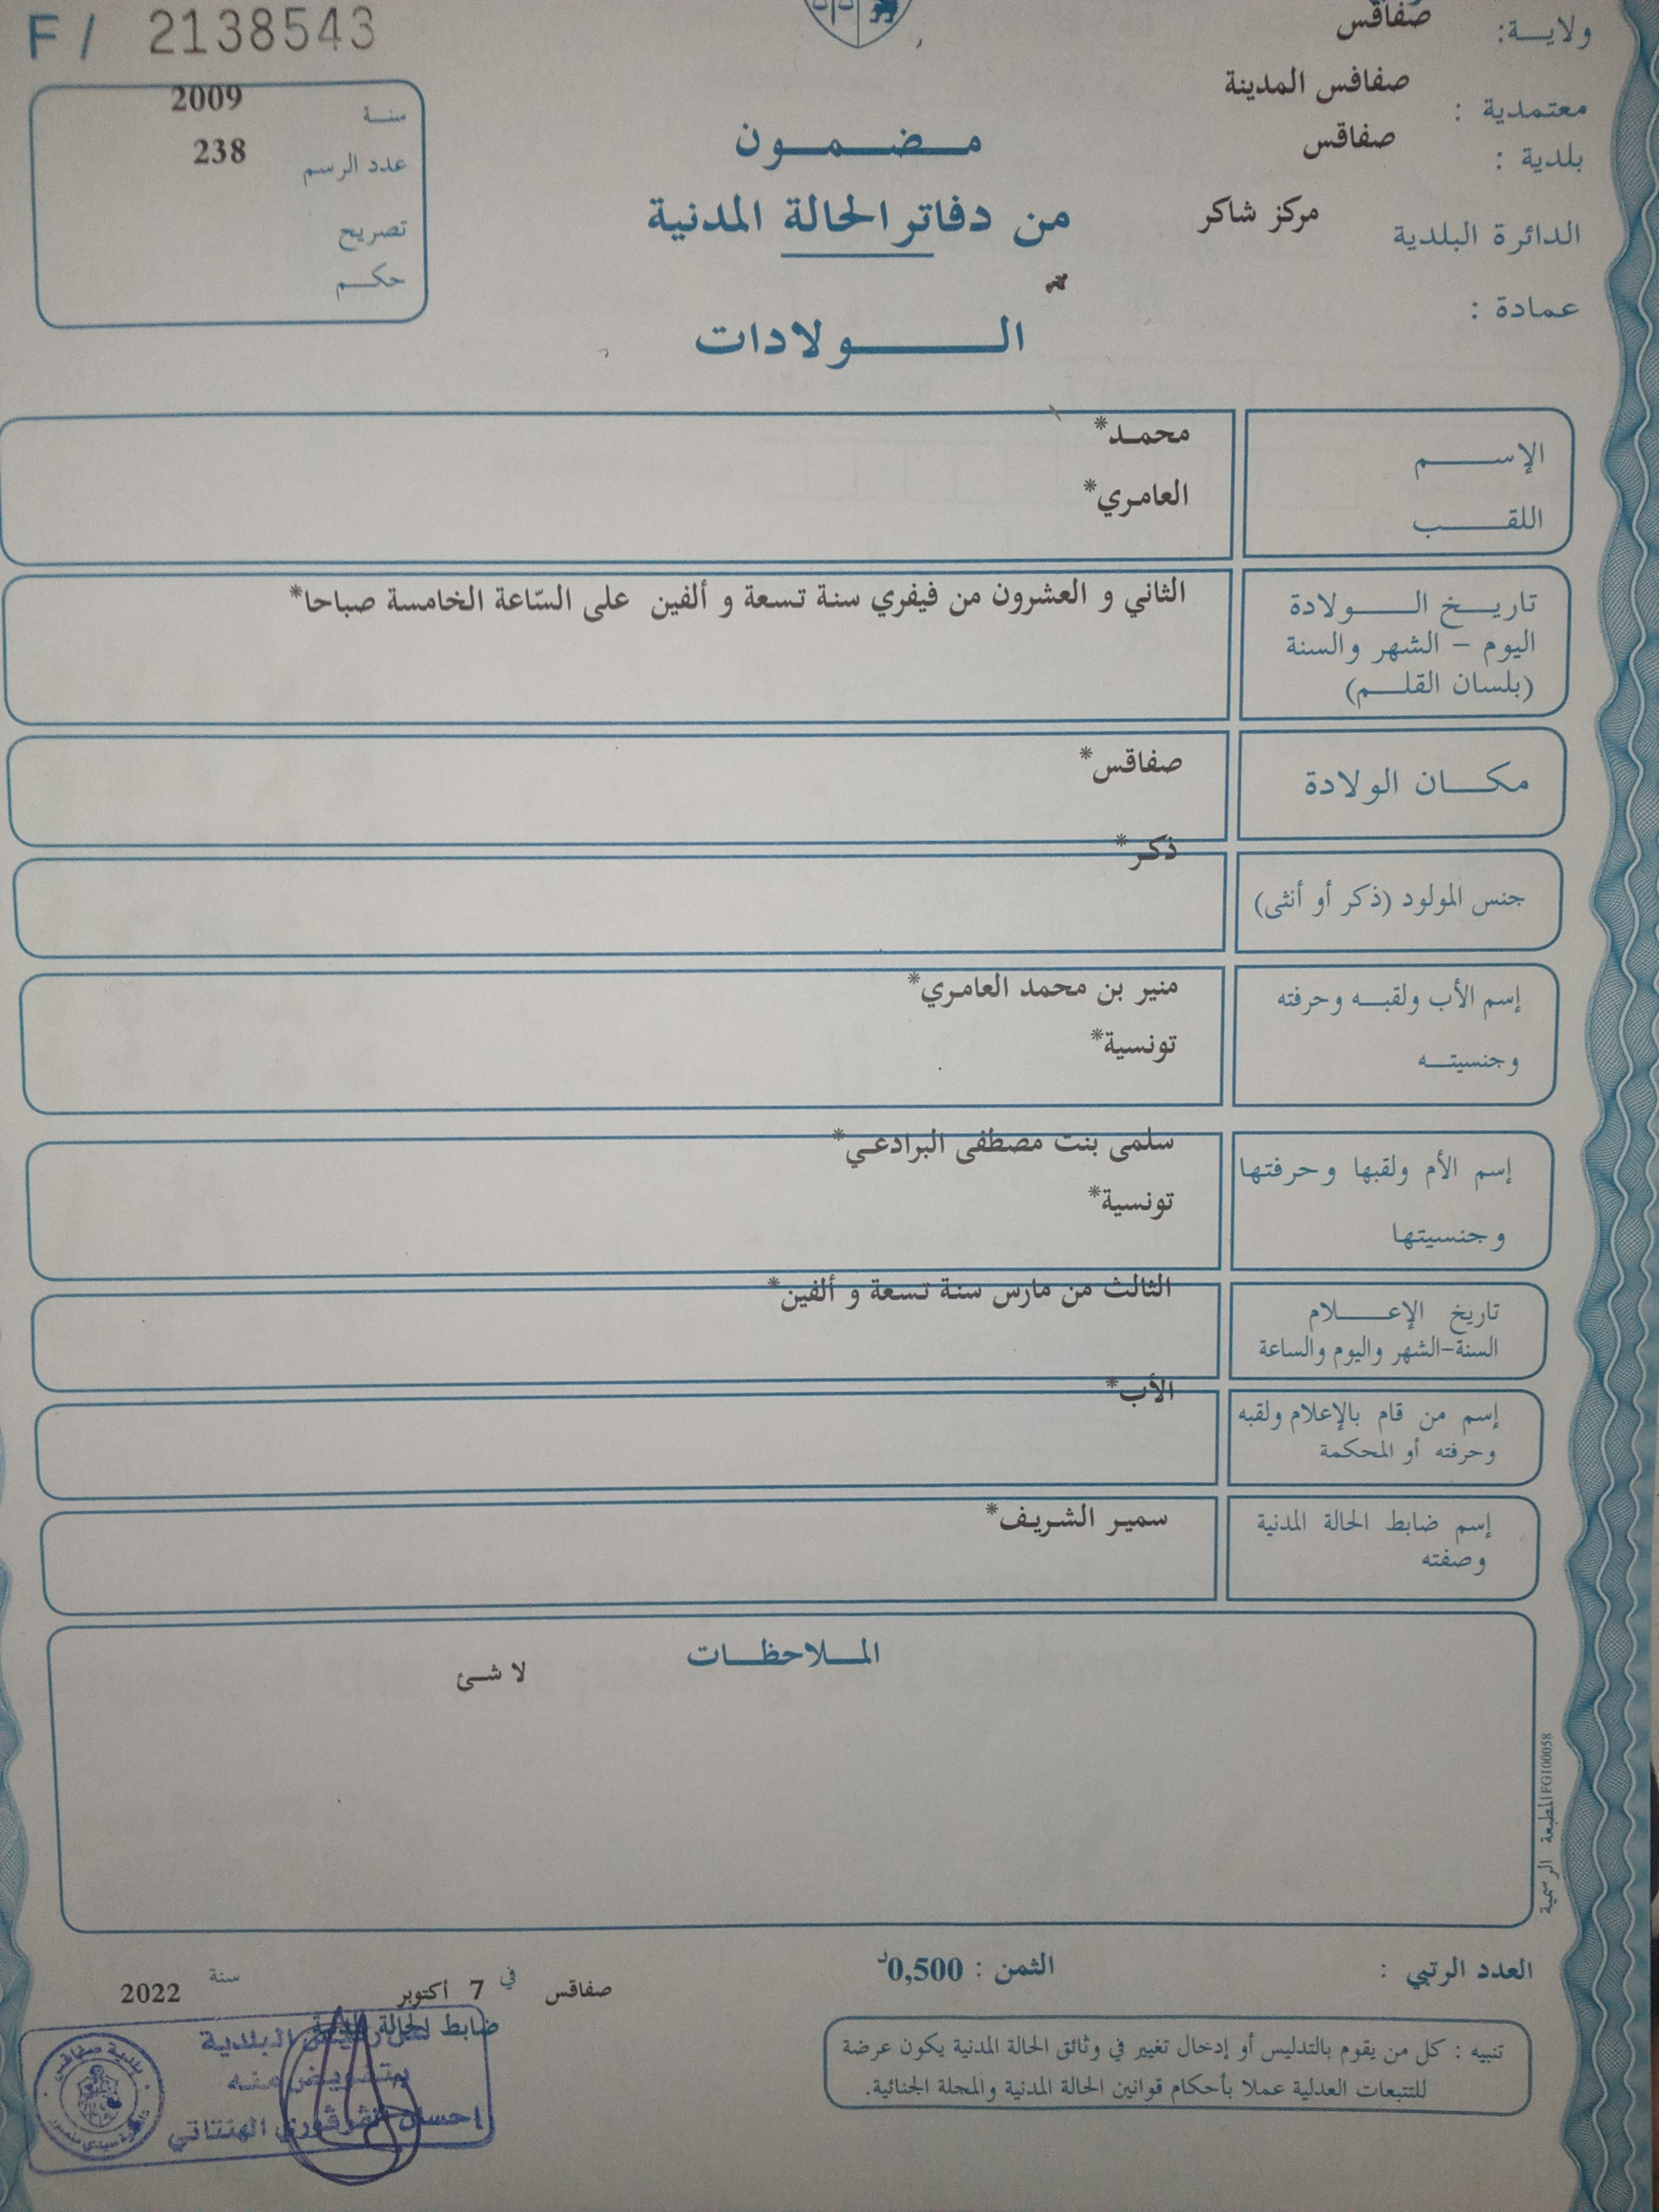 F / 2138543
ولاية: صفاقس
معتمدية : صفاقس المدينة
بلدية : صفاقس
الدائرة البلدية مركز شاكر
عمادة :
سنة 2009
عدد الرسم 238
تصريح
حكم
مضمون
من دفاتر الحالة المدنية
الولادات
الإسم محمد*
اللقب العامري*
تاريخ الولادة الثاني و العشرون من فيفري سنة تسعة و ألفين على السّاعة الخامسة صباحا*
اليوم - الشهر والسنة
(بلسان القلم)
مكان الولادة صفاقس*
جنس المولود (ذكر أو أنثى) ذكر*
إسم الأب ولقبه وحرفته منير بن محمد العامري*
وجنسيته تونسية*
إسم الأم ولقبها وحرفتها سلمى بنت مصطفى البرادعي*
وجنسيتها تونسية*
تاريخ الإعلام الثالث من مارس سنة تسعة و ألفين*
السنة-الشهر واليوم والساعة
إسم من قام بالإعلام ولقبه الأب*
وحرفته أو المحكمة
إسم ضابط الحالة المدنية سمير الشريف*
وصفته
الملاحظات
لا شئ
المطبعة الرسمية FG100058
العدد الرتبي :
الثمن : 0,500د
صفاقس في 7 اكتوبر سنة 2022
ضابط الحالة المدنية
عن رئيس البلدية
بتفويض منه
إحسان القرقوري الهنتاتي
بلدية صفاقس
تنبيه : كل من يقوم بالتدليس أو إدخال تغيير في وثائق الحالة المدنية يكون عرضة
للتتبعات العدلية عملا بأحكام قوانين الحالة المدنية والمجلة الجنائية.